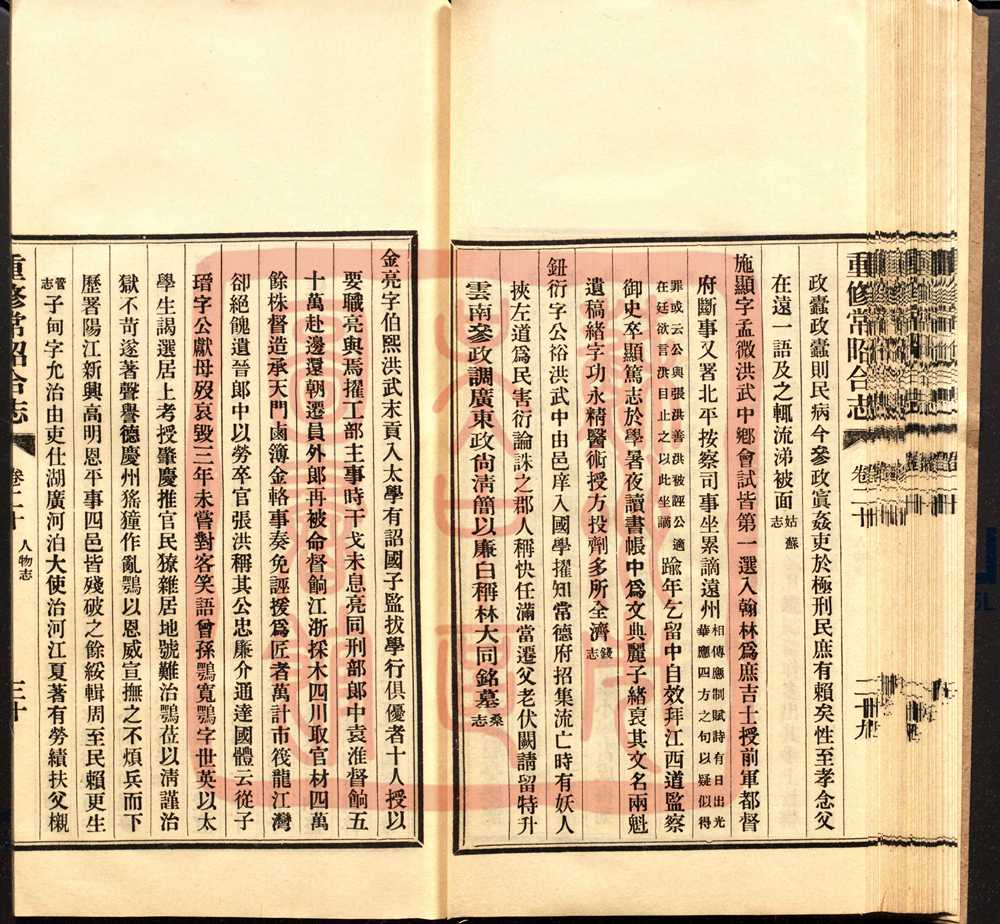 重修常昭合志 卷二十 二十九
政蠹政蠹則民病今參政寘姦吏於極刑民庶有賴矣性至孝念父
在遠一語及之輒流涕被面姑蘇志
施顯字孟微洪武中鄕會試皆第一選入翰林爲庶吉士授前軍都督
府斷事又署北平按察司事坐累謫遠州相傳應制賦詩有日出光華應四方之句以疑似得
罪或云公與張洪善洪被誣公適在廷欲言洪目止之以此坐謫踰年乞留中自效拜江西道監察
御史卒顯篤志於學暑夜讀書帳中爲文典麗子緒裒其文名兩魁
遺稿緒字功永精醫術授方投劑多所全濟錢志
鈕衍字公裕洪武中由邑庠入國學擢知常德府招集流亡時有妖人
挾左道爲民害衍論誅之郡人稱快任滿當遷父老伏闕請留特升
雲南參政調廣東政尙淸簡以廉白稱林大同銘墓桑志
金亮字伯熙洪武末貢入太學有詔國子監拔學行俱優者十人授以
要職亮與焉擢工部主事時干戈未息亮同刑部郞中袁淮督餉五
十萬赴邊還朝遷員外郞再被命督餉江浙採木四川取官材四萬
餘株督造承天門鹵簿金輅事奏免誣援爲匠者萬計市筏龍江灣
卻絕餽遺晉郞中以勞卒官張洪稱其公忠廉介通達國體云從子
瑨字公獻母歿哀毀三年未嘗對客笑語曾孫鶚寬鶚字世英以太
學生謁選居上考授肇慶推官民獠雜居地號難治鶚莅以淸謹治
獄不苛遂著聲譽德慶州猺獞作亂鶚以恩威宣撫之不煩兵而下
歷署陽江新興高明恩平事四邑皆殘破之餘綏輯周至民賴更生
管志子甸字允治由吏仕湖廣河泊大使治河江夏著有勞績扶父櫬
重修常昭合志 卷二十 人物志 三十